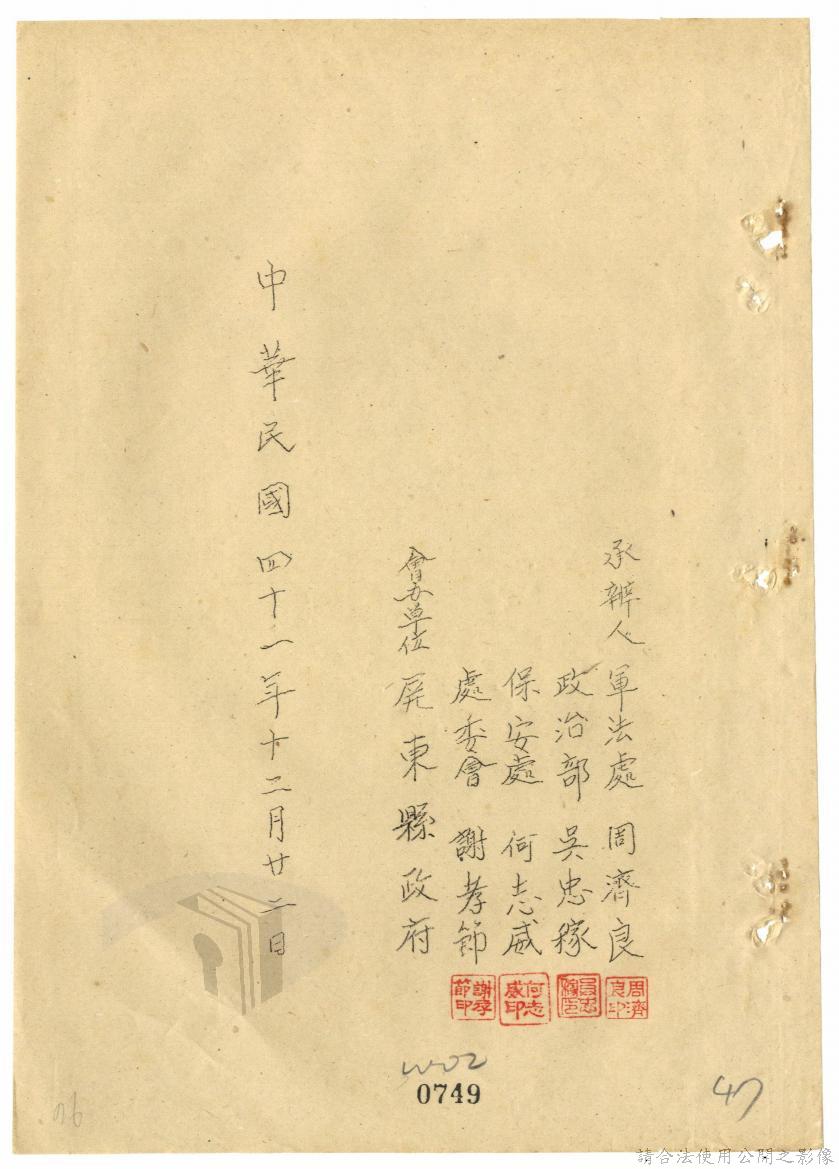 承辦人 軍法處 周濟良
政治部 吳忠稼
保安處 何志威
處委會 謝孝節
會办单位 屏東縣政府
中華民國四十一年十二月廿二日
周濟良印
何志威印
謝孝節印
0749
47
請合法使用公開之影像